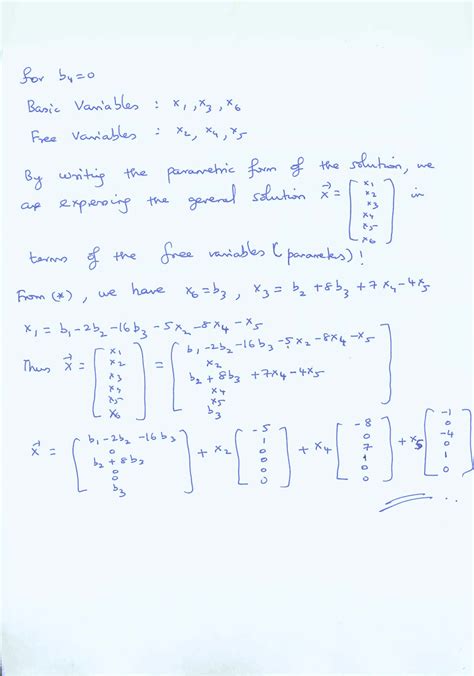 for b₄=0
Basic Variables : x₁, x₃, x₆
Free Variables : x₂, x₄, x₅
By writing the parametric form of the solution, we
are expressing the general solution x⃗ = [x₁ x₂ x₃ x₄ x₅ x₆] in
terms of the free variables (parameters)!
From (*), we have x₆=b₃, x₃ = b₂+8b₃+7x₄-4x₅
x₁ = b₁-2b₂-16b₃-5x₂-8x₄-x₅
Thus x⃗ = [x₁ x₂ x₃ x₄ x₅ x₆] = [b₁-2b₂-16b₃-5x₂-8x₄-x₅ x₂ b₂+8b₃+7x₄-4x₅ x₄ x₅ b₃]
x⃗ = [b₁-2b₂-16b₃ 0 b₂+8b₃ 0 0 b₃] + x₂ [-5 1 0 0 0 0] + x₄ [-8 0 7 1 0 0] + x₅ [-1 0 -4 0 1 0]